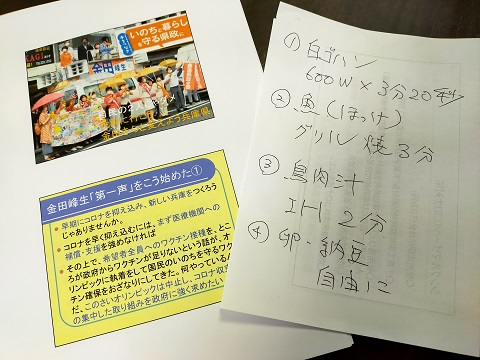 いのちと暮らし
を守る県政に
峰生
兵庫県
金田峰生「第一声」をこう始めた①
• 早期にコロナを抑え込み、新しい兵庫をつくろう
じゃありませんか。
• コロナを早く抑え込むには、まず医療機関への
補償・支援を強めなければ
• その上で、希望者全員へのワクチン接種を、とこ
ろが政府からワクチンが足りないという話が、オ
リンピックに執着をして国民のいのちを守るワク
チン確保をおざなりにしてきた。何やっている
だ、このさいオリンピックは中止し、コロナ収
の集中した取り組みを政府に強く求めたい
① 白ゴハン
600W×3分20秒
② 魚(ほっけ)
グリル焼3分
③ 鳥肉汁
IH 2分
④ 卵・納豆
自由に